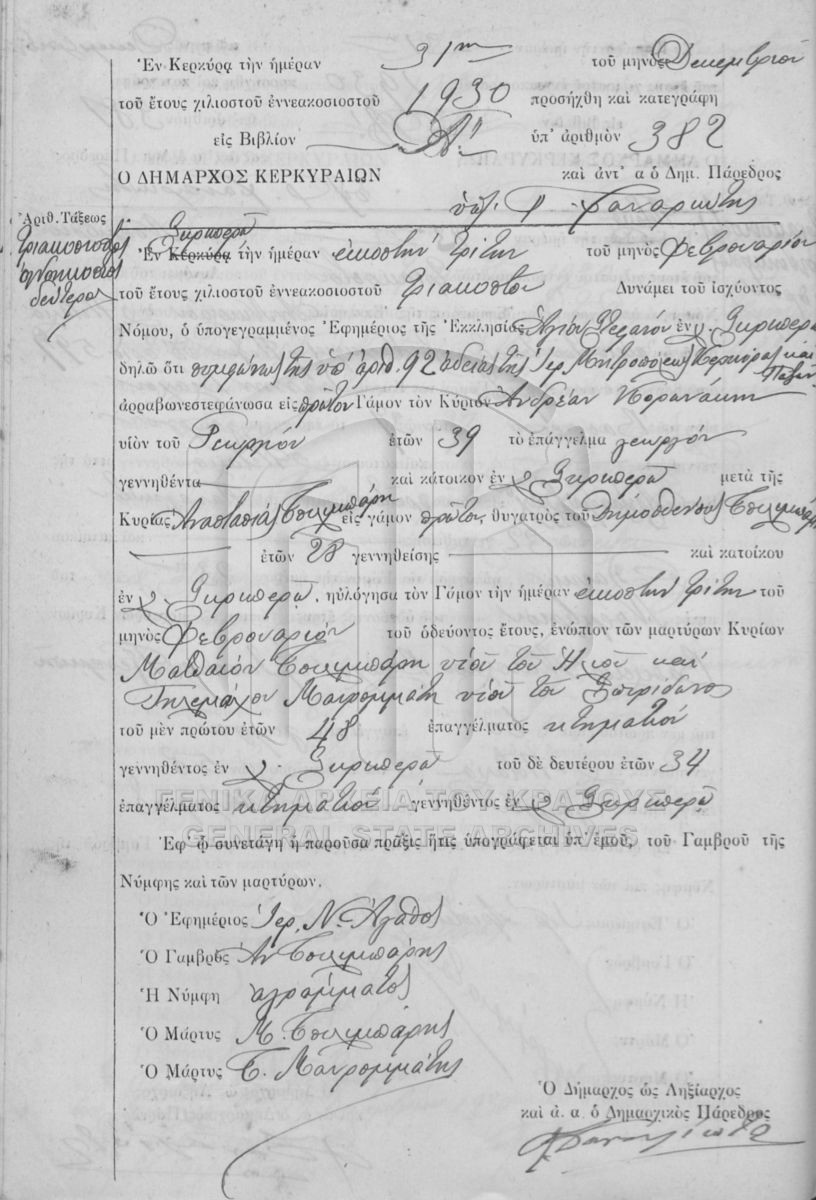 Ἐν Κερκύρᾳ τὴν ἡμέραν 31ην τοῦ μηνὸς Δεκεμβρίου
τοῦ ἔτους χιλιοστοῦ ἐννεακοσιοστοῦ 1930 προσήχθη καὶ κατεγράφη
εἰς Βιβλίον Α΄ ὑπ' ἀριθμὸν 382
Ο ΔΗΜΑΡΧΟΣ ΚΕΡΚΥΡΑΙΩΝ καὶ ἀντ' α ὁ Δημ. Πάρεδρος
Ἀριθ. Τάξεως
τριακοσιοστὸς
ὀγδοηκοστὸς
δεύτερος
Σκριπερῷ
Ἐν Κερκύρᾳ τὴν ἡμέραν εἰκοστὴν τρίτην τοῦ μηνὸς Φεβρουαρίου
τοῦ ἔτους χιλιοστοῦ ἐννεακοσιοστοῦ τριακοστοῦ Δυνάμει τοῦ ἰσχύοντος
Νόμου, ὁ ὑπογεγραμμένος Ἐφημέριος τῆς Ἐκκλησίας Ἁγίου Στεφάνου ἐν Σκριπερῷ
δηλῶ ὅτι συμφώνως τῆς ὑπ' ἀριθ. 92 ἀδείας τῆς Ἱερ. Μητροπόλεως Κερκύρας καὶ
Παξῶν
ἀρραβωνεστεφάνωσα εἰς πρῶτον Γάμον τὸν Κύριον Ἀνδρέαν
υἱὸν τοῦ Γεωργίου ἐτῶν 39 τὸ ἐπάγγελμα γεωργὸν
γεννηθέντα καὶ κάτοικον ἐν Σκριπερῷ μετὰ τῆς
Κυρίας Ἀναστασίας εἰς γάμον πρῶτον, θυγατρὸς τοῦ Δημοσθένους
ἐτῶν 28 γεννηθείσης καὶ κατοίκου
ἐν Σκριπερῷ, ηὐλόγησα τὸν Γάμον τὴν ἡμέραν εἰκοστὴν τρίτην τοῦ
μηνὸς Φεβρουαρίου τοῦ ὁδεύοντος ἔτους, ἐνώπιον τῶν μαρτύρων Κυρίων
Ματθαίου υἱοῦ τοῦ καὶ
Τηλεμάχου Μαυρομμάτη υἱοῦ τοῦ Σπυρίδωνος
τοῦ μὲν πρώτου ἐτῶν 48 ἐπαγγέλματος κτηματίου
γεννηθέντος ἐν Σκριπερῷ τοῦ δὲ δευτέρου ἐτῶν 34
ἐπαγγέλματος κτηματίου γεννηθέντος ἐν Σκριπερῷ
ΓΕΝΙΚΑ ΑΡΧΕΙΑ ΤΟΥ ΚΡΑΤΟΥΣ
GENERAL STATE ARCHIVES
Ἐφ' ᾧ συνετάγη ἡ παροῦσα πρᾶξις ἥτις ὑπογράφεται ὑπ' ἐμοῦ, τοῦ Γαμβροῦ τῆς
Νύμφης καὶ τῶν μαρτύρων.
Ὁ Ἐφημέριος Ἱερ. Ν. Ἀγαθὸς
Ὁ Γαμβρὸς Ἀν
Ἡ Νύμφη ἀγράμματος
Ὁ Μάρτυς Μ.
Ὁ Μάρτυς Τ. Μαυρομμάτης
Ὁ Δήμαρχος ὡς Ληξίαρχος
καὶ ἀ. α. ὁ Δημαρχικὸς Πάρεδρος